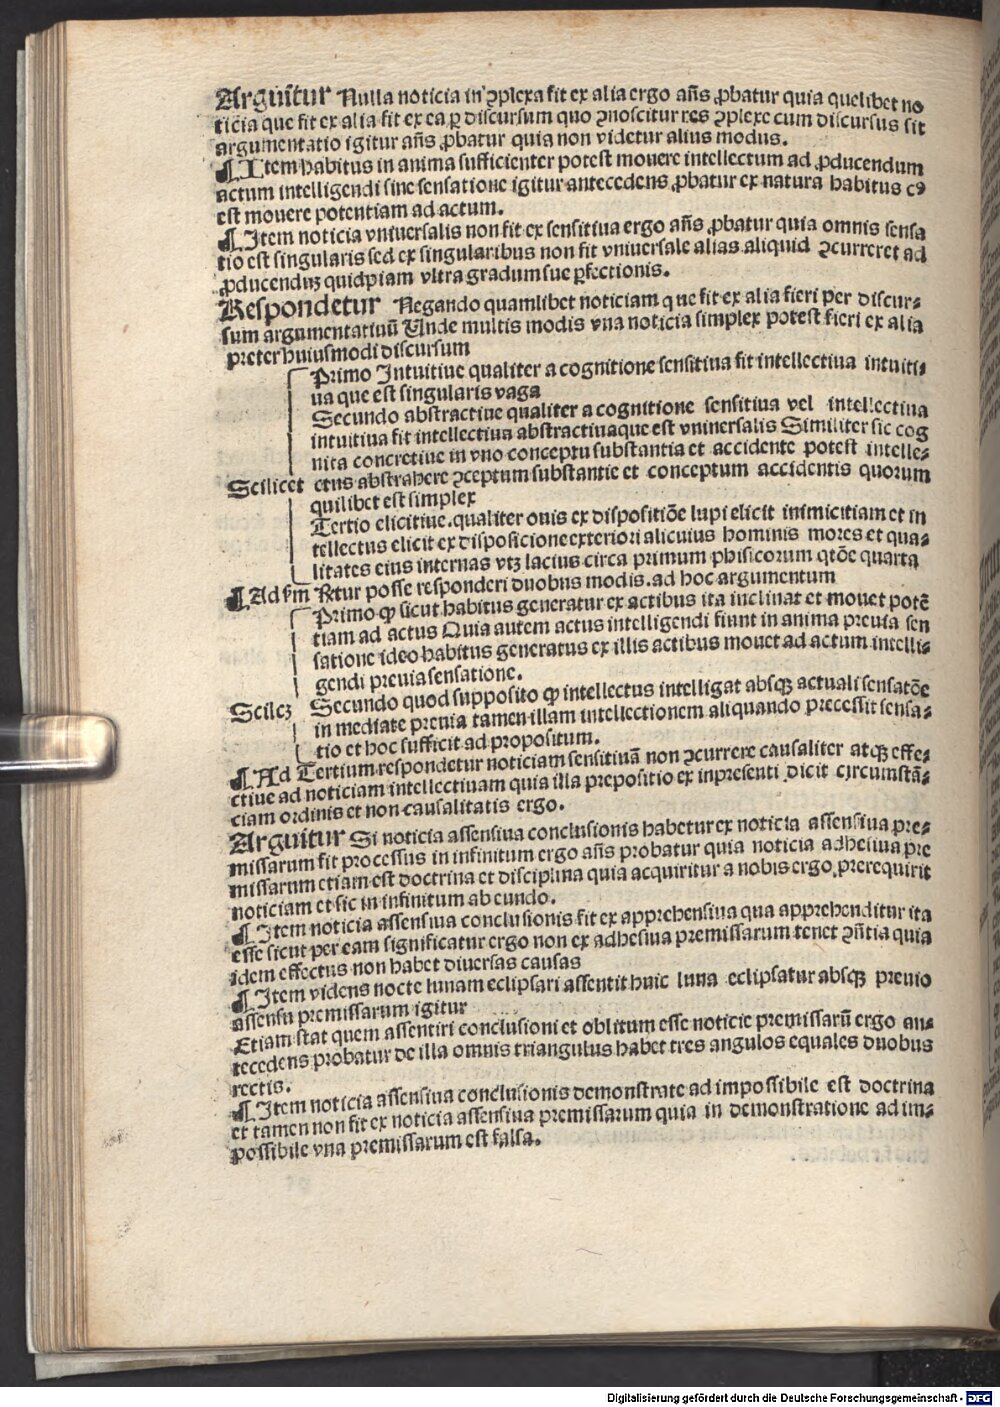 Arguitur Nulla noticia in ꝯplexa fit ex alia ergo añs ꝓbatur quia quelibet no
ticia que fit ex alia fit ex ea ꝑ discursum quo ꝯnoscitur res ꝯplexe cum discursus sit
argumentatio igitur añs ꝓbatur quia non videtur alius modus.
¶ Item habitus in anima sufficienter potest mouere intellectum ad ꝓducendum
actum intelligendi sine sensatione igitur antecedens ꝓbatur ex natura habitus cꝰ
est mouere potentiam ad actum.
¶ Item noticia vniuersalis non fit ex sensitiua ergo añs ꝓbatur quia omnis sensa
tio est singularis sed ex singularibus non fit vniuersale alias aliquid ꝯcurreret ad
ꝓducenduꝫ quidpiam vltra gradum sue ꝑfectionis.
Respondetur Negando quamlibet noticiam que fit ex alia fieri per discur⸗
sum argumentatiuū Unde multis modis vna noticia simplex potest fieri ex alia
preter huiusmodi discursum
Primo Intuitiue qualiter a cognitione sensitiua fit intellectiua intuiti⸗
ua que est singularis vaga
Secundo abstractiue qualiter a cognitione sensitiua vel intellectiua
intuitiua fit intellectiua abstractiua que est vniuersalis Similiter sic cog
nita concretiue in vno conceptu substantia et accidente potest intelle⸗
Scilicet ctus abstrahere ꝯceptum substantie et conceptum accidentis quorum
quilibet est simplex
Tertio elicitiue. qualiter ouis ex dispositiōe lupi elicit inimicitiam et in
tellectus elicit ex disposicione exteriori alicuius hominis mores et qua⸗
litates eius internas vtꝫ lacius circa primum phisicorum qtōe quarta
¶ Ad ẜm Rētur posse responderi duobus modis. ad hoc argumentum
Primo ꝙ sicut habitus generatur ex actibus ita inclinat et mouet potē
tiam ad actus Quia autem actus intelligendi fiunt in anima preuia sen
satione ideo habitus generatus ex illis actibus mouet ad actum intelli⸗
gendi preuia sensatione.
Scilcꝫ Secundo quod supposito ꝙ intellectus intelligat absqꝫ actuali sensatōe
in mediate preuia tamen illam intellectionem aliquando precessit sensa⸗
tio et hoc sufficit ad propositum.
¶ Ad Tertium respondetur noticiam sensitiuā non ꝯcurrere causaliter atqꝫ effe⸗
ctiue ad noticiam intellectiuam quia illa prepositio ex inpresenti dicit circumstā⸗
ciam ordinis et non causalitatis ergo.
Arguitur Si noticia assensiua conclusionis habetur ex noticia assensiua pre⸗
missarum fit processus in infinitum ergo añs probatur quia noticia adhesiua pre
missarum etiam est doctrina et disciplina quia acquiritur a nobis ergo prerequirit
noticiam et sic in infinitum abeundo.
¶ Item noticia assensiua conclusionis fit ex apprehensiua qua apprehenditur ita
esse sicut per eam significatur ergo non ex adhesiua premissarum tenet ꝯñtia quia
idem effectus non habet diuersas causas
¶ Item videns nocte lunam eclipsari assentit huic luna eclipsatur absqꝫ preuio
assensu premissarum igitur
Etiam stat quem assentiri conclusioni et oblitum esse noticie premissarū ergo an⸗
tecedens probatur de illa omnis triangulus habet tres angulos equales duobus
rectis.
¶ Item noticia assensiua conclusionis demonstrate ad impossibile est doctrina
et tamen non fit ex noticia assensiua premissarum quia in demonstratione ad im⸗
possibile vna premissarum est falsa.
Digitalisierung gefördert durch die Deutsche Forschungsgemeinschaft - DFG